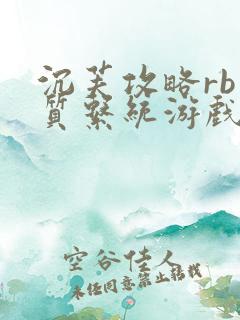 沉芙攻略rb
质系统游戏
空谷佳人
未经同意禁止转载